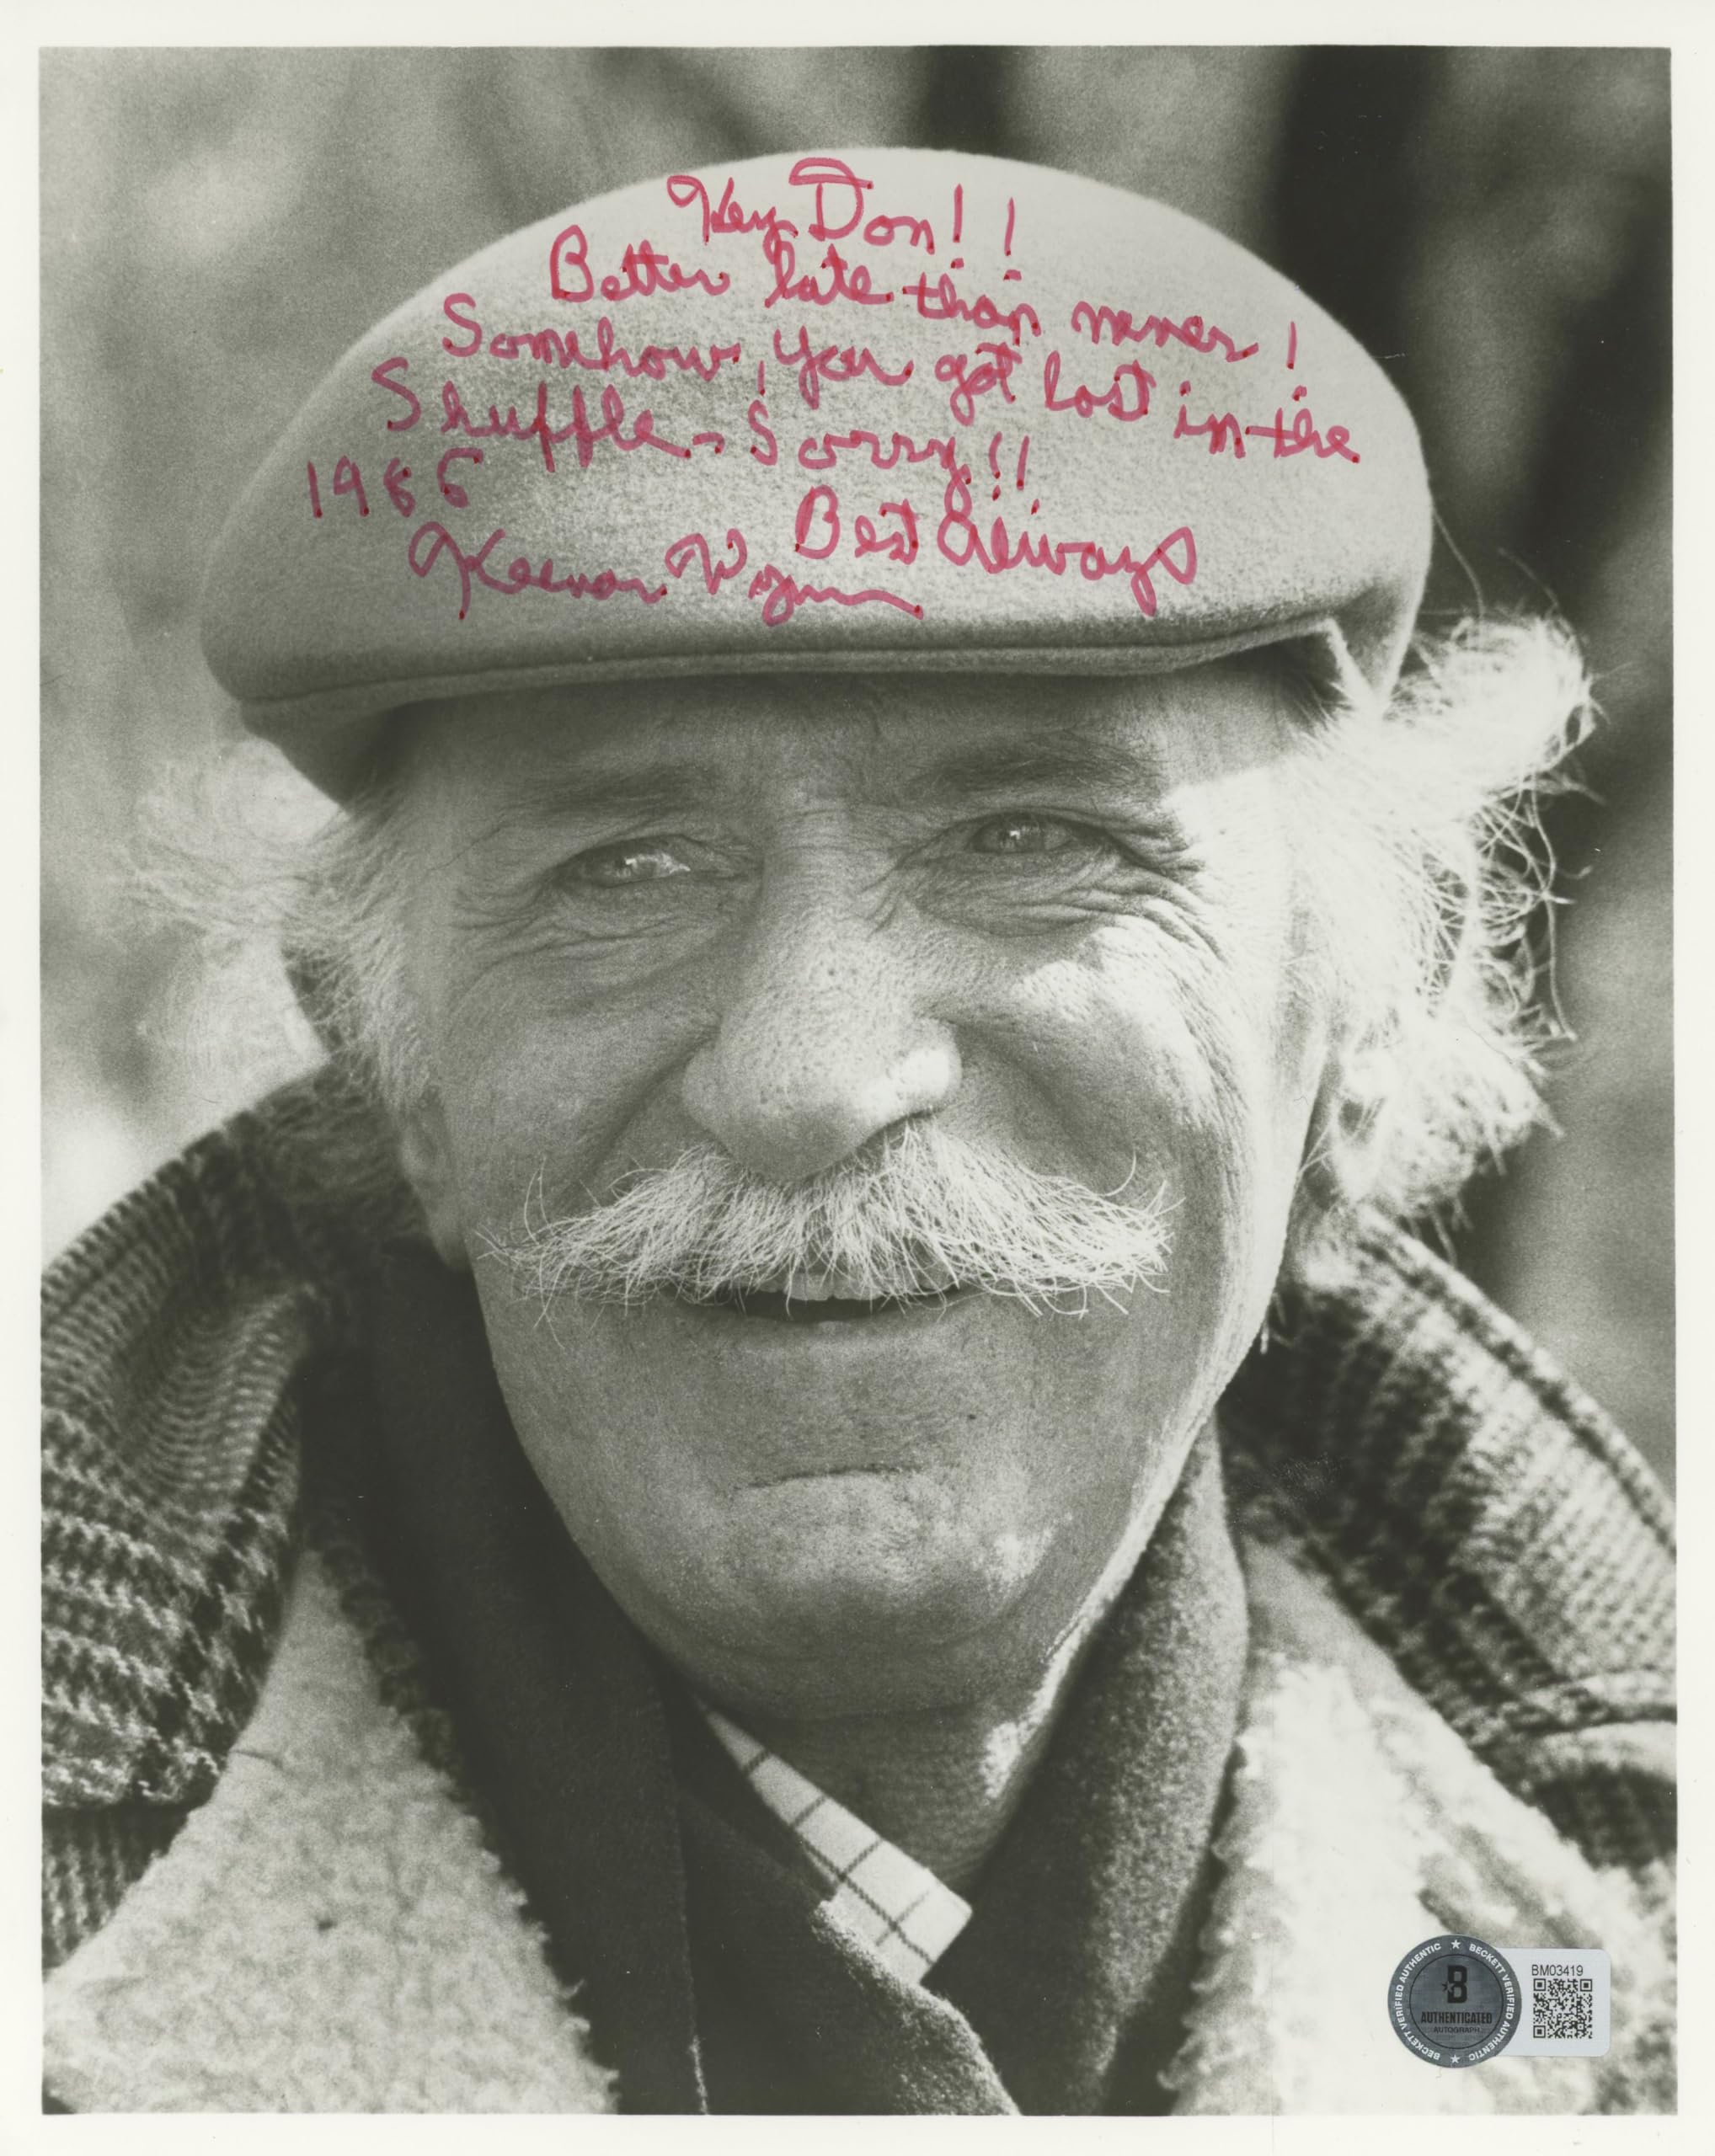 Hey Don!!
Better late than never!
Somehow, you got lost in the
Shuffle - Sorry!!
1986
Best Always
Keenan Wynn
BECKETT VERIFIED AUTHENTIC ★ BECKETT VERIFIED AUTHENTIC ★
B
AUTHENTICATED
AUTOGRAPH
BM03419